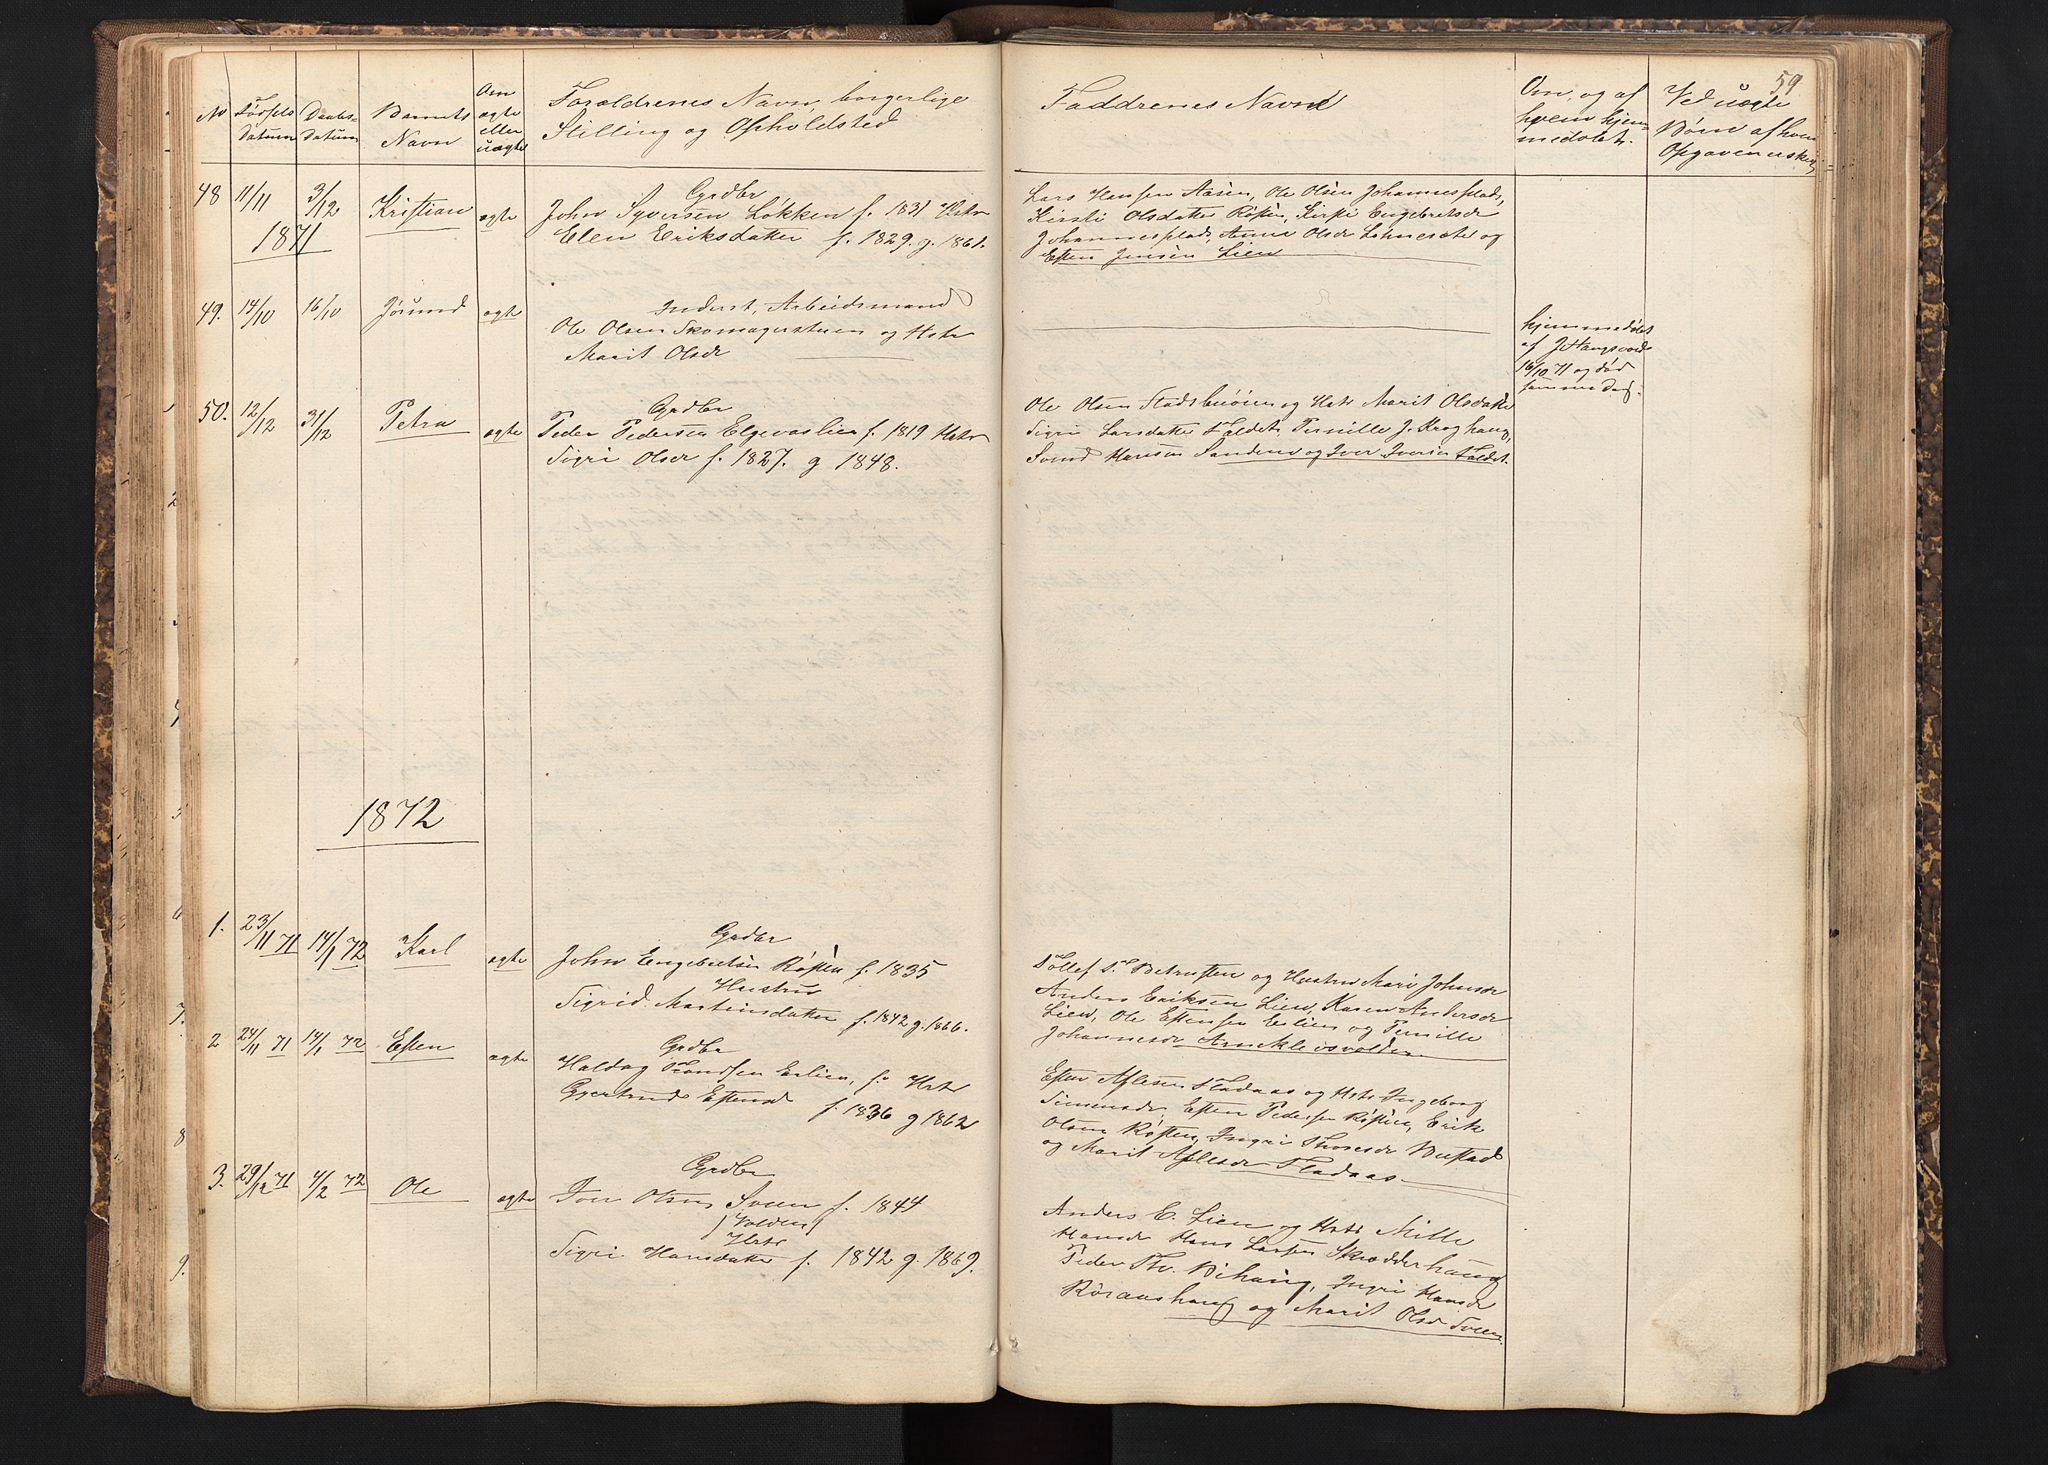 59
No
Fødsels
Datum
Daabs-
Datum
Barnets
Navn
Om
ægte
eller
uægte
Forældrenes Navn, borgerlige
Stilling og Opholdsted
Faddrenes Navne
Om, og af
hvem hjem-
medøbt.
Ved uægte
Børn af hvem
Opgaven er skeet
48 11/11 3/12 Kristian ægte
1871
Grdbr
John Syversen Løkken f. 1831 Hstr
Elen Eriksdatter f. 1829. g. 1861.
Lars Hansen Aasen, Ole Olsen Johannesplads,
Kirsti Olsdatter Røsten, Kirsti Engebretsdr
Johannesplads, Anne Olsdr Lohnesæter og
Esten Jensen Lien
49. 14/10 16/10 Jørund ægte
Inderst, Arbeidsmand
Ole Olsen Skomagerstuen og Hstr
Marit Olsdr
hjemmedøbt
af J Haugsvold
16/10 71 og død
samme Dag.
50. 12/12 31/12 Petra ægte
Grdbr
Peder Pedersen Elgevaslien f. 1819 Hstr
Sigri Olsdr f. 1827. g 1848.
Ole Olsen Stadsbuøien og Hstr Marit Olsdatter
Sigri Larsdatter Kaldet, Pernille J. Kroghaug,
Svend Hansen Sanden og Iver Iversen Kaldet.
1872
1. 23/11 71 14/1 72 Karl ægte
Grdbr
John Engebretsen Røsten f. 1835
Hustru
Sigrid Martinsdatter f. 1842 g. 1866.
Tollef T. Betrusten og Hustru Mari Johnsdr
Anders Eriksen Lien, Karen Andersdr
Lien, Ole Estensen Erlien og Pernille
Johannesdr Arnekleivvolden
2 24/11 71 14/1 72 Esten ægte
Grdbr
Haldog Trondsen Erlien, f. Hstr
Gjertrud Estensdr f. 1836 g 1862
Esten Aslesen Fladaas og Hstr Ingeborg
Simensdr, Esten Pedersen Røsten, Erik
Olsen Røsten, Ingri Thoresdr Bustad
og Marit Aslesdr Fladaas.
3. 29/12 71 4/2 72 Ole ægte
Grdbr
Jon Olsen Sveen f. 1844
(Volden)
Hstr
Sigri Hansdatter f. 1842 g. 1869.
Anders E. Lien og Hstr Mille
Hansdr Hans Larsen Skrodderhaug
Peder Th. Bihaug, Ingri Hansdr
Røraashaug og Marit Olsdr Sveen.